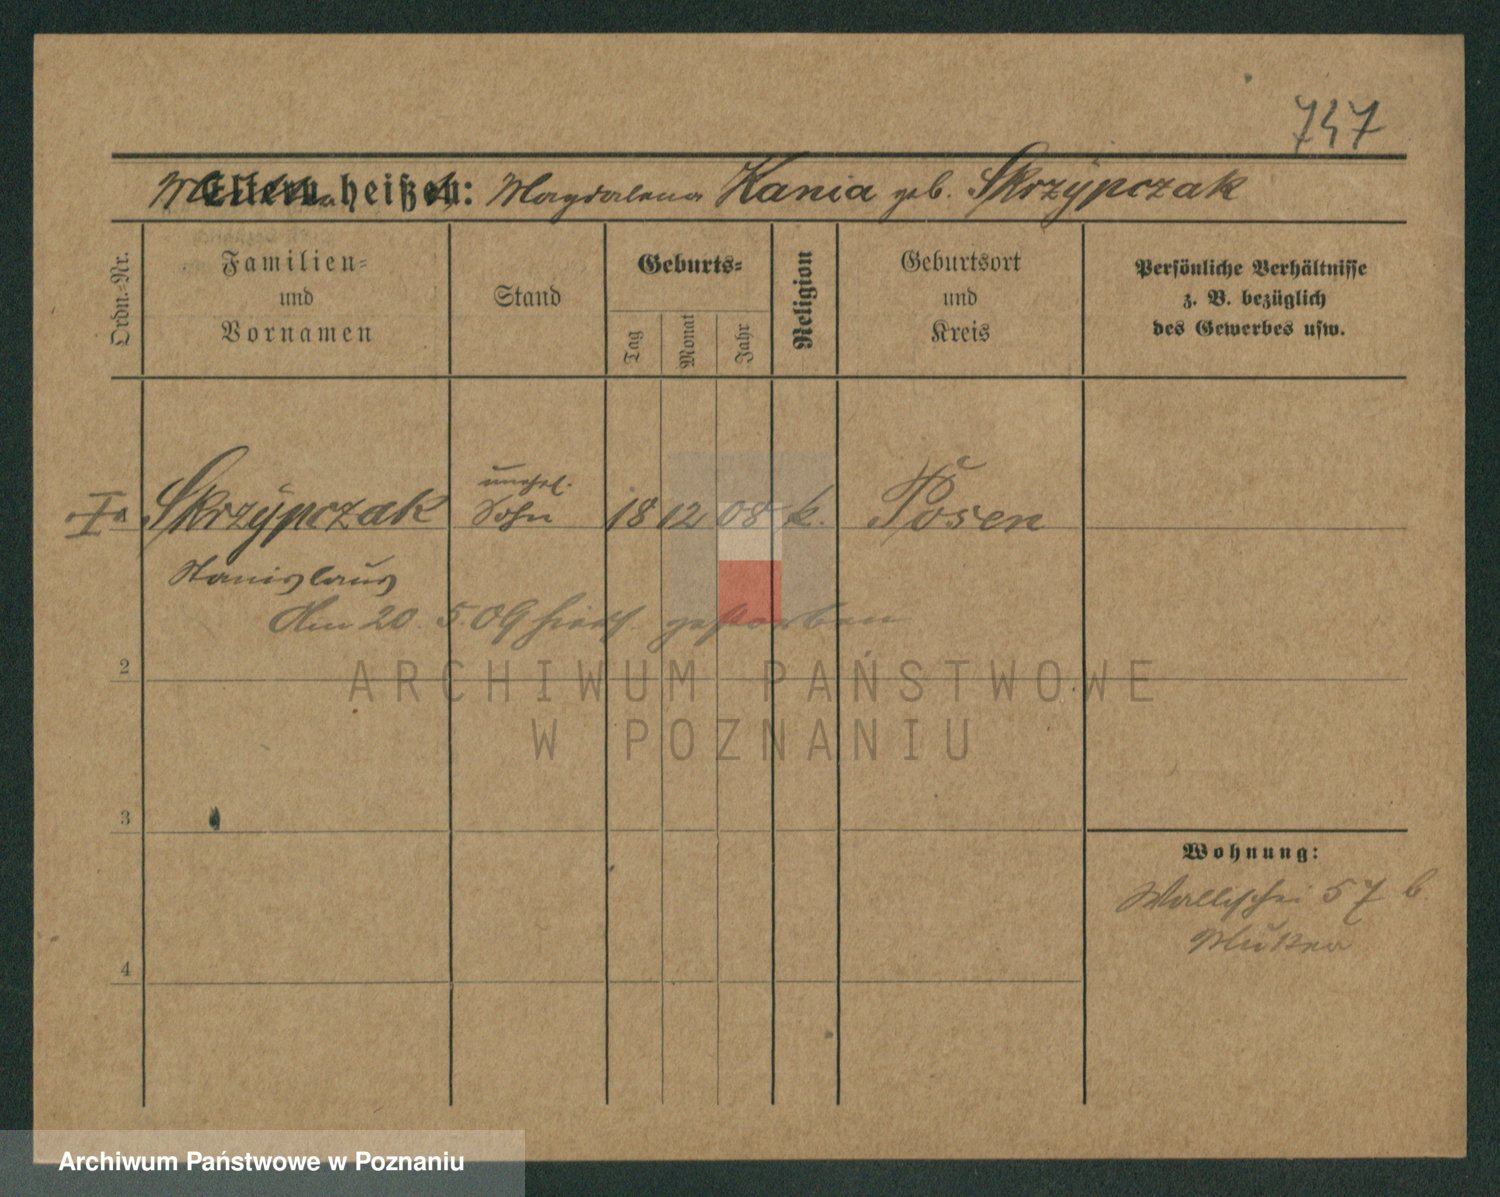 747
Eltern heißen: Magdalena Kania geb. Skrzypczak
Ordn.-Nr.
Familien-
und
Vornamen
Stand
Geburts-
Tag
Monat
Jahr
Religion
Geburtsort
und
Kreis
Persönliche Verhältnisse
z. B. bezüglich
des Gewerbes usw.
unehel.
Skrzypczak Sohn 18 12 08 k. Posen
Stanislaus
Am 20. 5. 09 hier gestorben
2
3
4
Wohnung:
Wallischei 57 b.
Mutter
ARCHIWUM PAŃSTWOWE
W POZNANIU
Archiwum Państwowe w Poznaniu